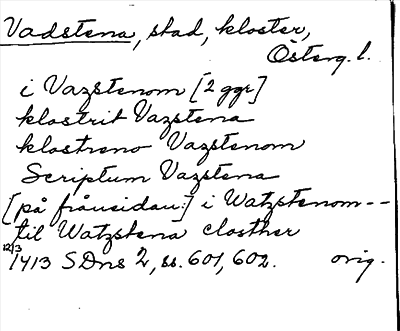 Vadstena, stad, kloster,
Österg. l.
i Vazstenom [2 ggr]
klostrit Vazstena
klostreno Vazstenom
Scriptum Vazstena
[på frånsidan:] i Watzstenom --
til Watzstena closther
12/3 1413 SDns 2, ss. 601, 602. orig.